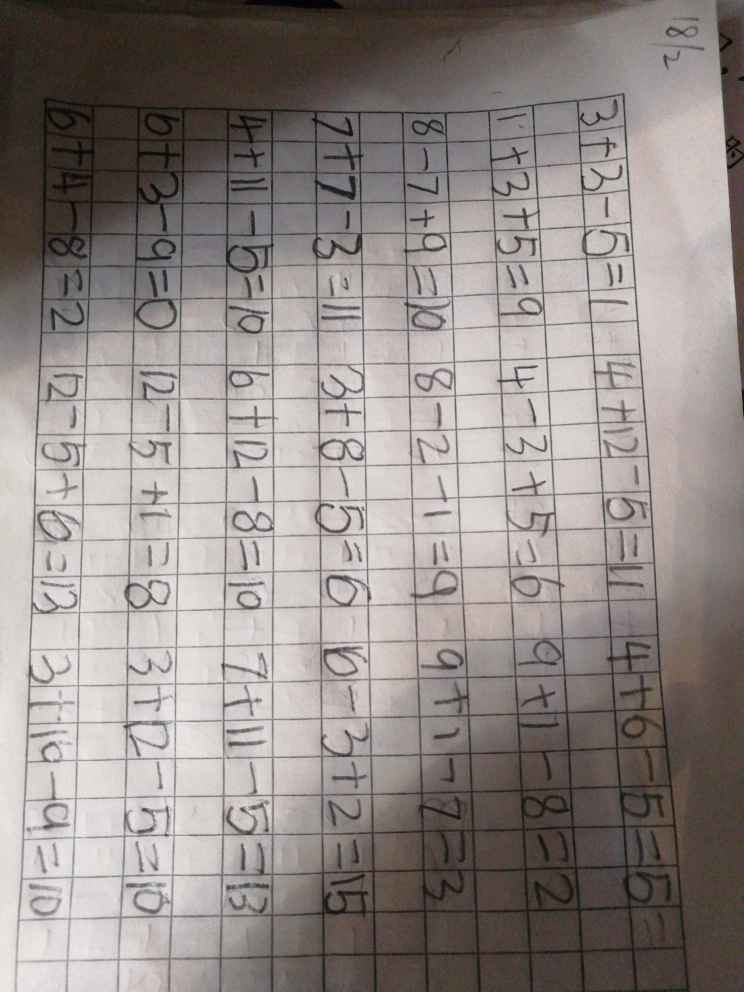 18/2
3+3-5=1 4+12-5=11 4+6-5=5=
1+3+5=9 4-3+5=6 9+1-8=2
8-7+9=10 8-2-1=9 9+1-7=3
7+7-3=11 3+8-5=6 10-3+2=15
4+11-5=10 6+12-8=10 7+11-5=13
6+3-9=0 12-5+1=8 3+12-5=10
6+4-8=2 12-5+6=13 3+16-9=10